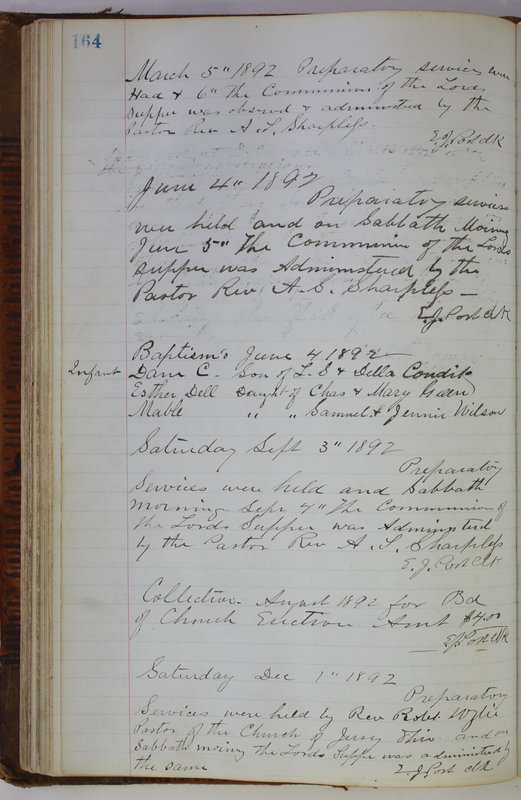 164
March 5" 1892 Preparatory services were
Had & 6" the Communion of the Lords
Supper was observed & administed by the
Pastor Rev A. S. Sharpless.
E. J. Post clk
June 4" 1892
Preparatory services
were held and on Sabbath Morning
June 5" The Communion of the Lords
supper was Administered by the
Pastor Rev. A. S. Sharpless —
E. J. Post clk
Baptisms June 4 1892
Infant Dane C. son of L. E & Della Condit
Esther Dell Daught of Chas & Mary
Mable " " Samuel & Jennie Wilson
Saturday Sept 3" 1892
Preparatory
Services were held and Sabbath
morning Sept 4" The Communion of
the Lords Supper was Administed
by the Pastor Rev A. S. Sharpless
E. J. Post Clk
Collection August 1892 for Bd
of Church Erection Amt $7.00
E J Post clk
Saturday Dec 1" 1892
Preparatory
Services were held by Rev Robt Wylie
Pastor of the Church of Jersey Ohio and on
Sabbath moring the Lords Supper was administed by
the same E. J. Post clk